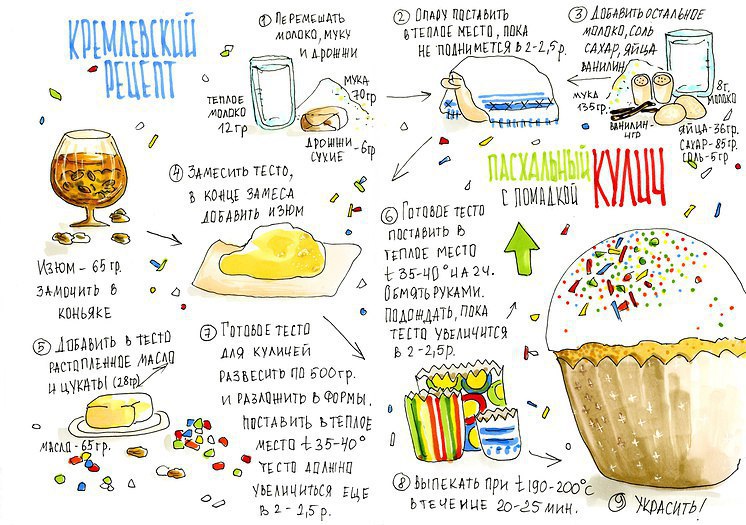 КРЕМЛЕВСКИЙ
РЕЦЕПТ
ПАСХАЛЬНЫЙ
С ПОМАДКОЙ
КУЛИЧ
① ПЕРЕМЕШАТЬ
МОЛОКО, МУКУ
И ДРОЖЖИ
ТЕПЛОЕ
МОЛОКО
12 ГР
МУКА
70 ГР
ДРОЖЖИ
СУХИЕ -6 ГР
② ОПАРУ ПОСТАВИТЬ
В ТЕПЛОЕ МЕСТО, ПОКА
НЕ ПОДНИМЕТСЯ В 2-2,5 р.
③ ДОБАВИТЬ ОСТАЛЬНОЕ
МОЛОКО, СОЛЬ
САХАР, ЯЙЦА
ВАНИЛИН
МУКА
135 ГР.
8 г.
МОЛОКО
ВАНИЛИН-
4 ГР
ЯЙЦА-36 ГР.
САХАР-85 ГР.
СОЛЬ-5 ГР
④ ЗАМЕСИТЬ ТЕСТО,
В КОНЦЕ ЗАМЕСА
ДОБАВИТЬ ИЗЮМ
ИЗЮМ - 65 ГР.
ЗАМОЧИТЬ В
КОНЬЯКЕ
⑤ ДОБАВИТЬ В ТЕСТО
РАСТОПЛЕННОЕ МАСЛО
И ЦУКАТЫ (28 ГР)
МАСЛО-65 ГР.
⑥ ГОТОВОЕ ТЕСТО
ПОСТАВИТЬ В
ТЕПЛОЕ МЕСТО
t 35-40° НА 2 Ч.
ОБМЯТЬ РУКАМИ.
ПОДОЖДАТЬ, ПОКА
ТЕСТО УВЕЛИЧИТСЯ
В 2-2,5 р.
⑦ ГОТОВОЕ ТЕСТО
ДЛЯ КУЛИЧЕЙ
РАЗВЕСИТЬ ПО 500 ГР.
И РАЗЛОЖИТЬ В ФОРМЫ.
ПОСТАВИТЬ В ТЕПЛОЕ
МЕСТО t 35-40°
ТЕСТО ДОЛЖНО
УВЕЛИЧИТЬСЯ ЕЩЕ
В 2-2,5 р.
⑧ ВЫПЕКАТЬ ПРИ t 190-200°С
В ТЕЧЕНИЕ 20-25 МИН.
⑨ УКРАСИТЬ!